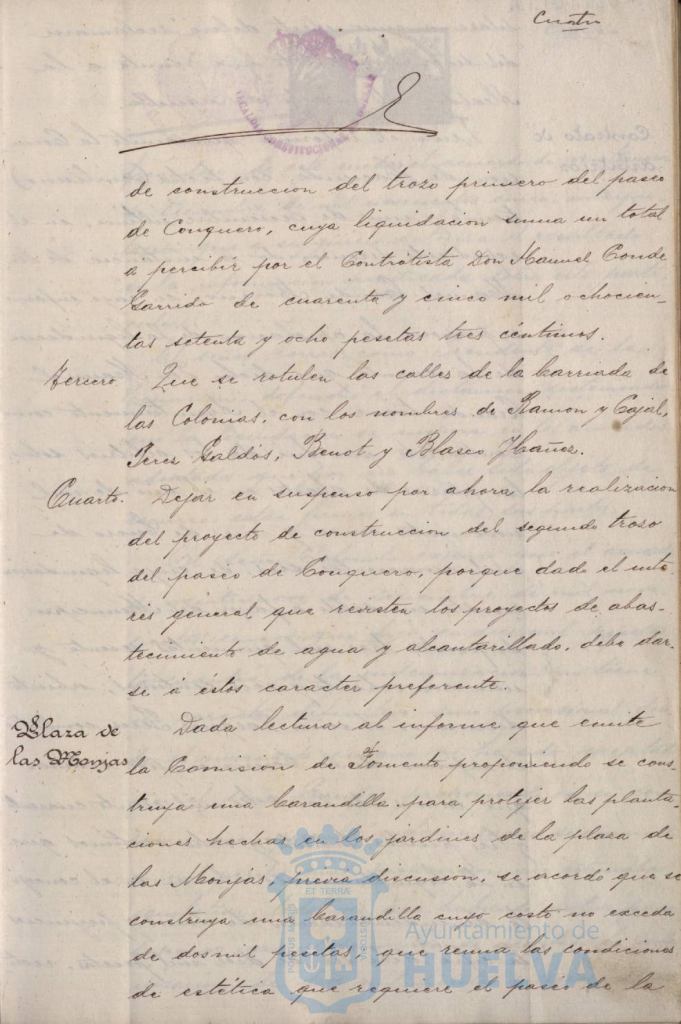 Cuatro
de construccion del trozo primero del paseo
de Conquero, cuya liquidacion suma un total
á percibir por el Contratista Don Manuel Conde
Garrido de cuarenta y cinco mil ochocien-
tas setenta y ocho pesetas tres céntimos.
Tercero Que se rotulen las calles de la barriada de
las Colonias, con los nombres de Ramon y Cajal,
Perez Galdós, Benot y Blasco Ibañez.
Cuarto. Dejar en suspenso por ahora la realizacion
del proyecto de construccion del segundo trozo
del paseo de Conquero, porque dado el inte-
rés general que revisten los proyectos de abas-
tecimiento de agua y alcantarillado, debe dar-
se á éstos caracter preferente.
Plaza de
las Monjas
Dada lectura al informe que emite
la Comision de Fomento proponiendo se cons-
truya una barandilla para protejer las planta-
ciones hechas en los jardines de la plaza de
las Monjas, previa discusion, se acordó que se
construya una barandilla cuyo costo no exceda
de dosmil pesetas, que reuna las condiciones
de estética que requiere el paseo de la
PORTUS MARIS ET TERRAE CUSTODIA
Ayuntamiento de
HUELVA